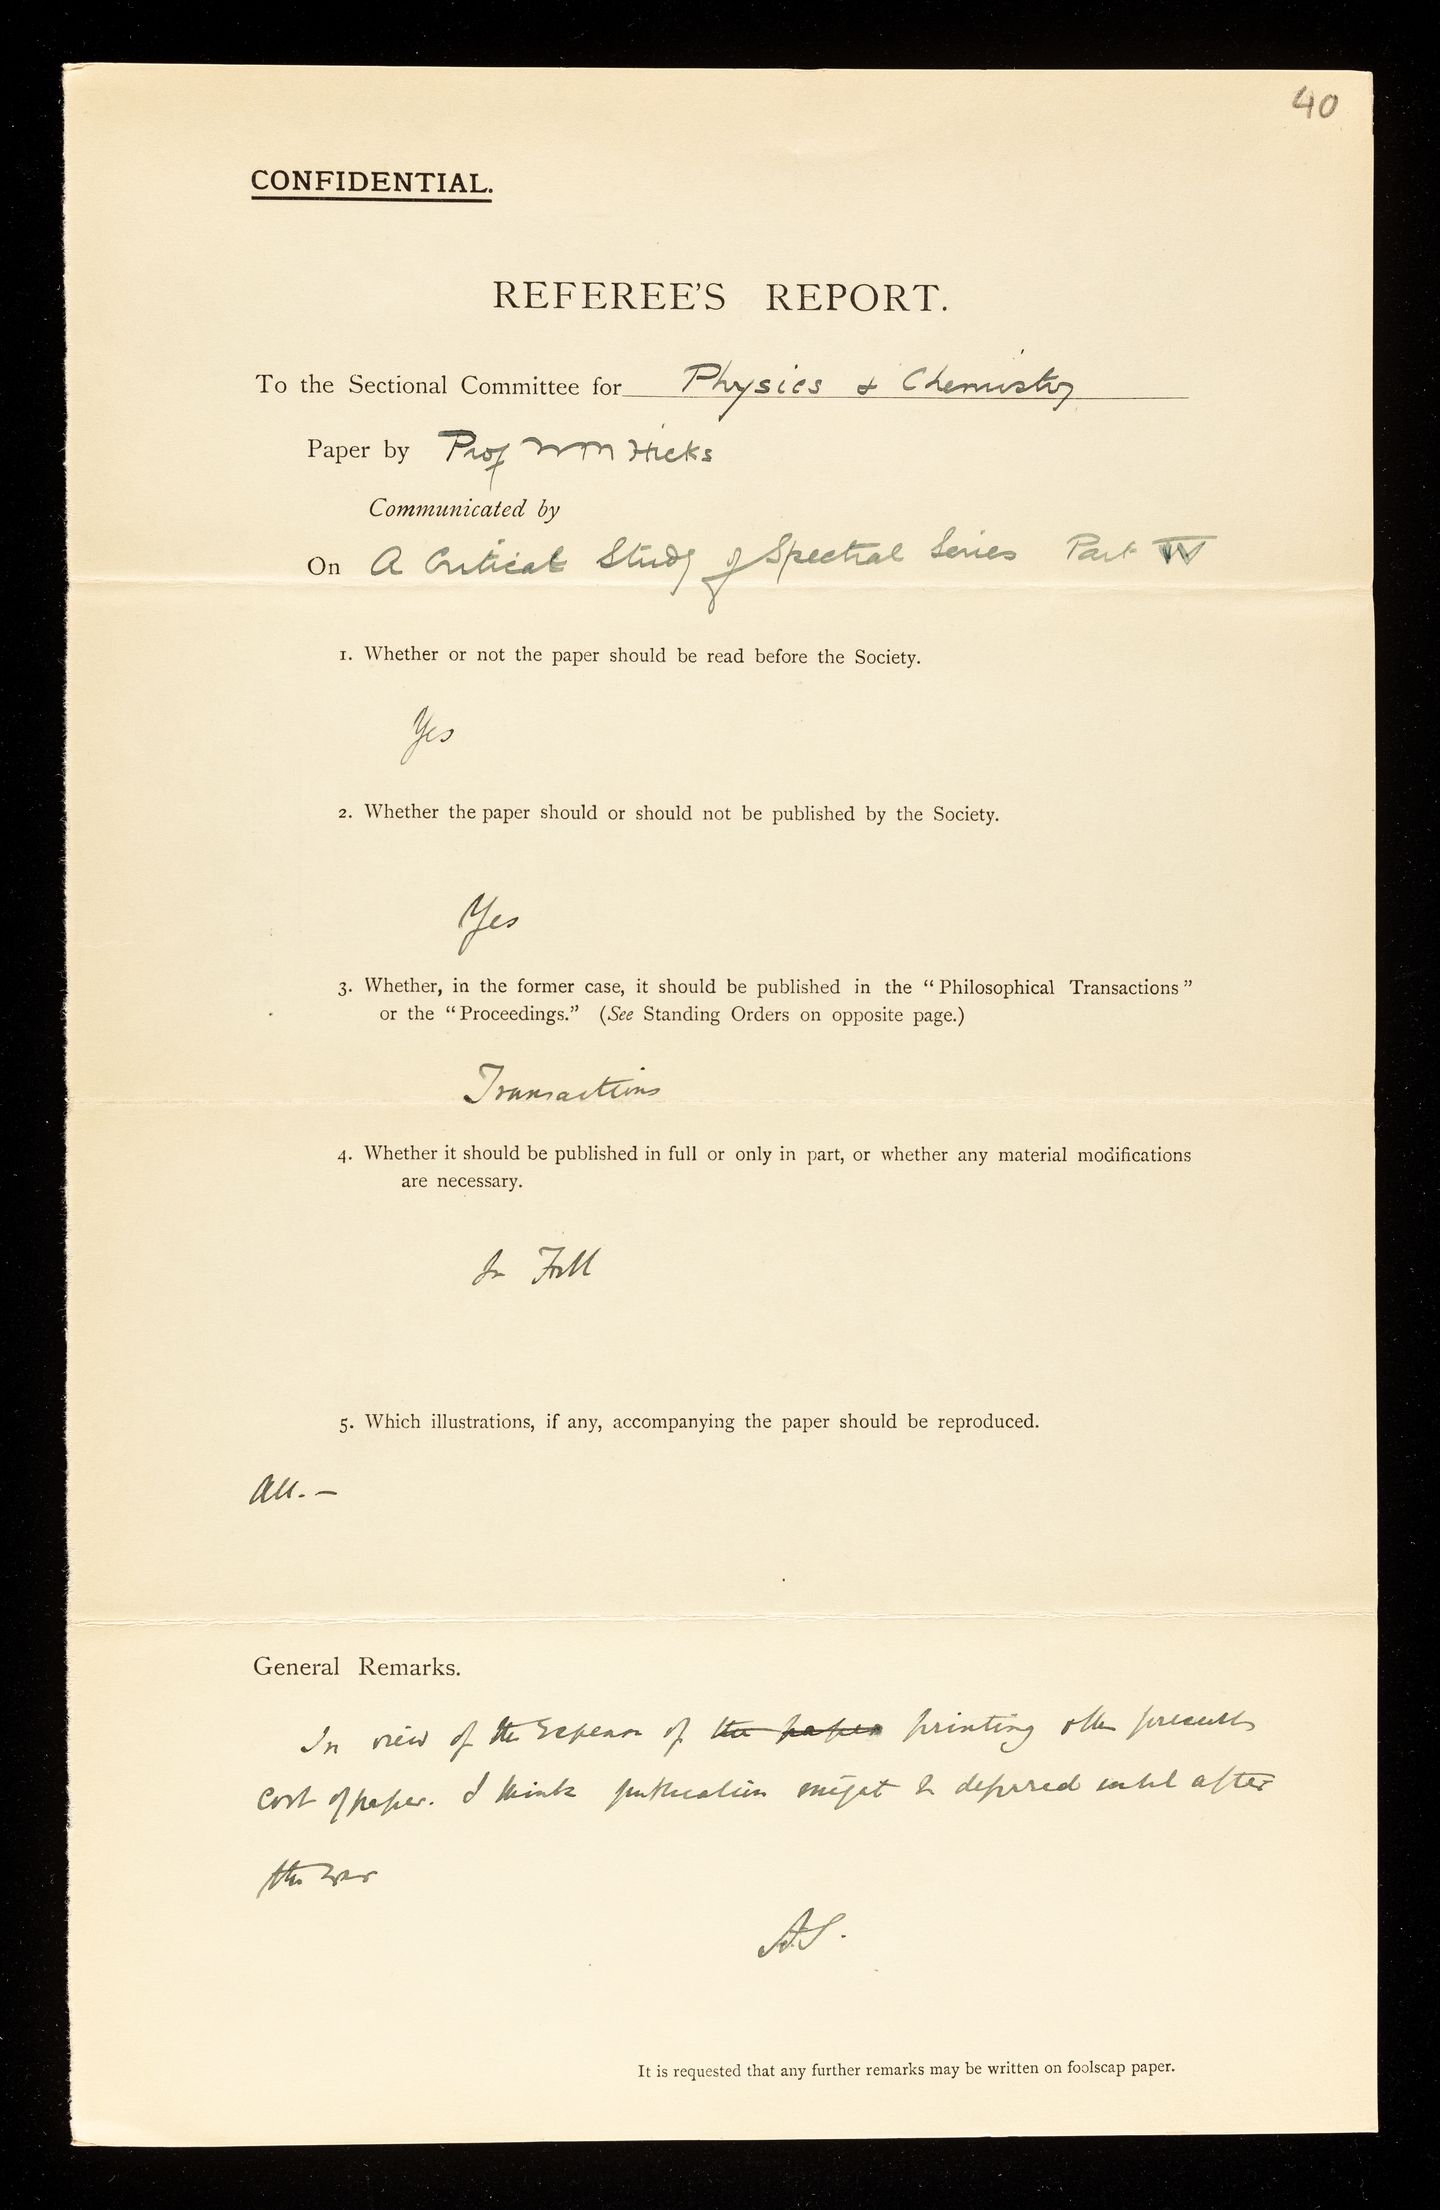 40
CONFIDENTIAL.
REFEREE'S REPORT.
To the Sectional Committee for Physics & Chemistry
Paper by Prof W M Hicks
Communicated by
On A Critical Study of Spectral Series Part
1. Whether or not the paper should be read before the Society.
Yes
2. Whether the paper should or should not be published by the Society.
Yes
3. Whether, in the former case, it should be published in the “Philosophical Transactions”
or the “Proceedings.” (See Standing Orders on opposite page.)
Transactions
4. Whether it should be published in full or only in part, or whether any material modifications
are necessary.
In Full
5. Which illustrations, if any, accompanying the paper should be reproduced.
All. —
General Remarks.
In view of the Expense of the paper printing & the present
cost of paper. I think publication might be deferred until after
the war
A.S.
It is requested that any further remarks may be written on foolscap paper.